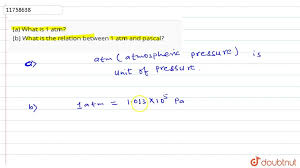 11758638
(a) What is 1 atm?
(b) What is the relation between 1 atm and pascal?
a) atm (atmospheric pressure) is
unit of pressure.
b) 1 atm = 1.013 × 10⁵ Pa
doubtnut